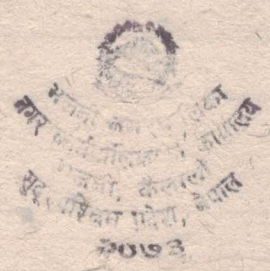 नगर कार्यपालिकाको कार्यालय
भजनी, कैलाली
सुदूरपश्चिम प्रदेश, नेपाल
२०७३